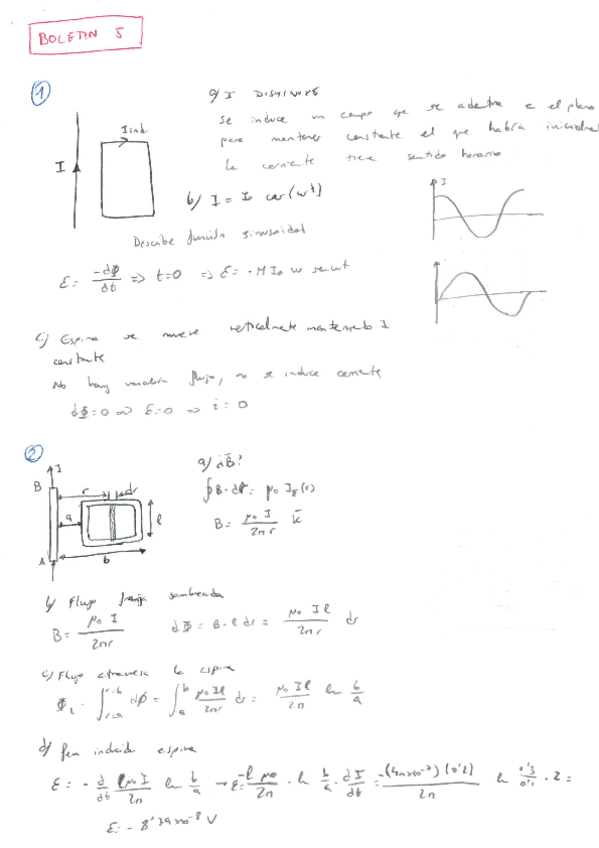 BOLETIN 5
1
a) I DISMINUYE
Se induce un campo que se adentra en el plano
para mantener constante el que había inicialmente
La corriente tiene sentido horario
I
Iind
b) I = I₀ cos(wt)
Describe función sinusoidal
I
ε = -dΦ/dt => t=0 => ε = -M I₀ w sen wt
c) Espira se mueve verticalmente manteniendo I
constante
No hay variación flujo, no se induce corriente
dΦ=0 => ε=0 => i = 0
2
I
B
r
dr
a
l
A
b
a) dB?
∮B·dr = μ₀ I
B = μ₀ I / 2πr k
b) Flujo franja sombreada
B = μ₀ I / 2πr    dΦ = B·l dr = μ₀ I l / 2πr dr
c) Flujo atraviesa la espira
Φ = ∫ r=a r=b dΦ = ∫ a b μ₀ I l / 2πr dr = μ₀ I l / 2π ln b/a
d) fem inducida espira
ε = - d/dt l μ₀ I / 2π ln b/a → ε = -l μ₀ / 2π · ln b/a · dI/dt = -(4π×10⁻⁷)(0'2) / 2π ln 0'3/0'1 · 2 =
ε = - 8'79×10⁻⁸ V